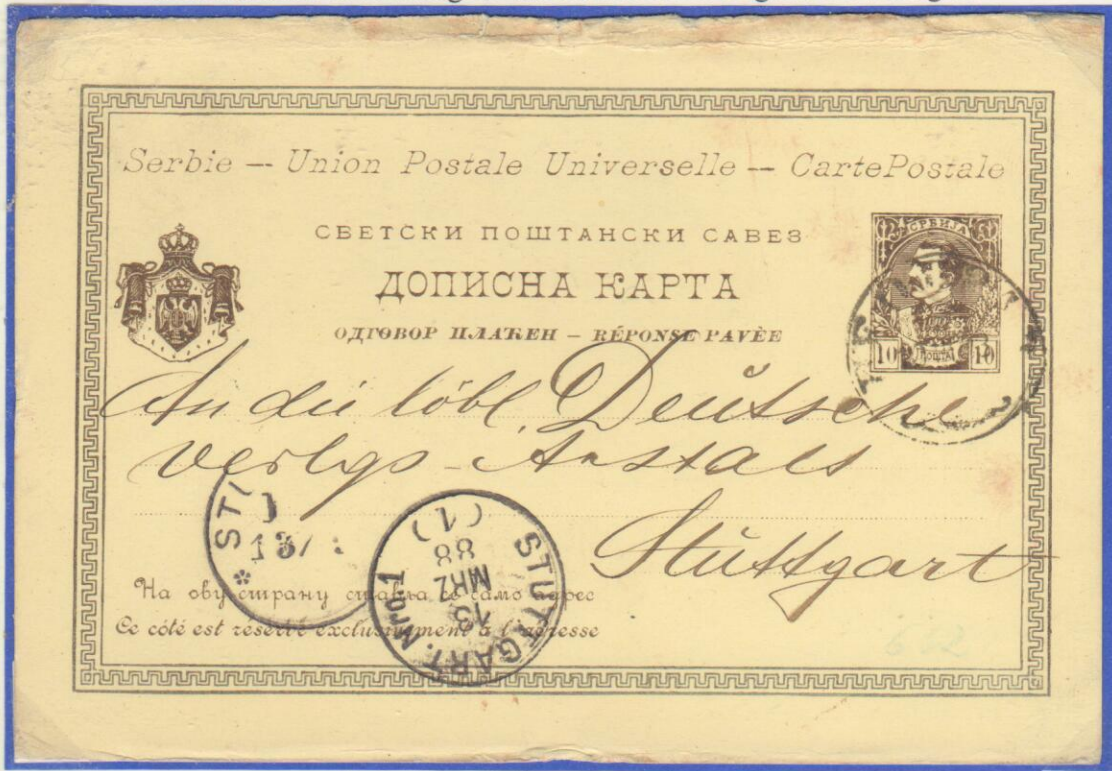 Serbie — Union Postale Universelle — Carte Postale
СВЕТСКИ ПОШТАНСКИ САВЕЗ
ДОПИСНА КАРТА
ОДГОВОР ПЛАЋЕН – RÉPONSE PAYÈE
СРБИЈА
10 ПОШТА 10
An die löbl. Deutsche
Verlgs-Anstalt
Stuttgart
На ову страну ставља се само адрес
Ce côté est réservé exclusivement à l'adresse
STUTTGART. Nro 1
13
MRZ
88
(1)